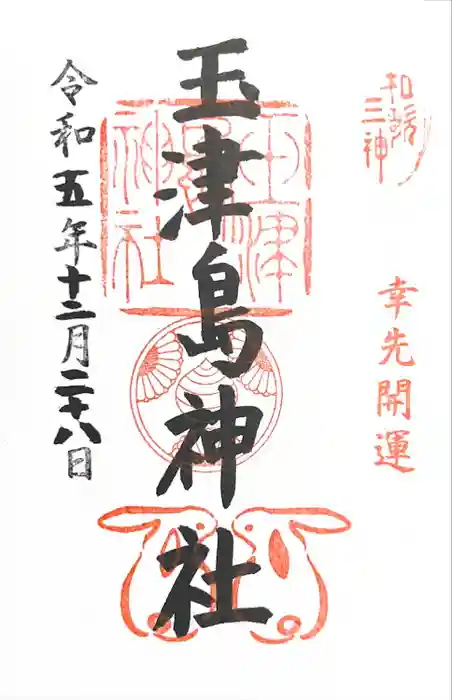 和歌三神
幸先開運
玉津島神社
玉津島神社
令和五年十二月二十八日